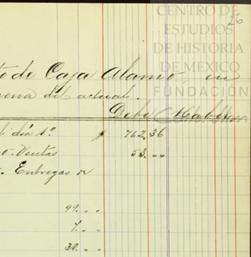 CENTRO DE
ESTUDIOS
DE HISTORIA
DE MEXICO
FUNDACIÓN
26
to de Caja Alamo, en
del actual.
Debe Haber
día 1º. $ 762,36
Ventas 53. „ „
Entregas de
99. „ „
7. „ „
30. „ „